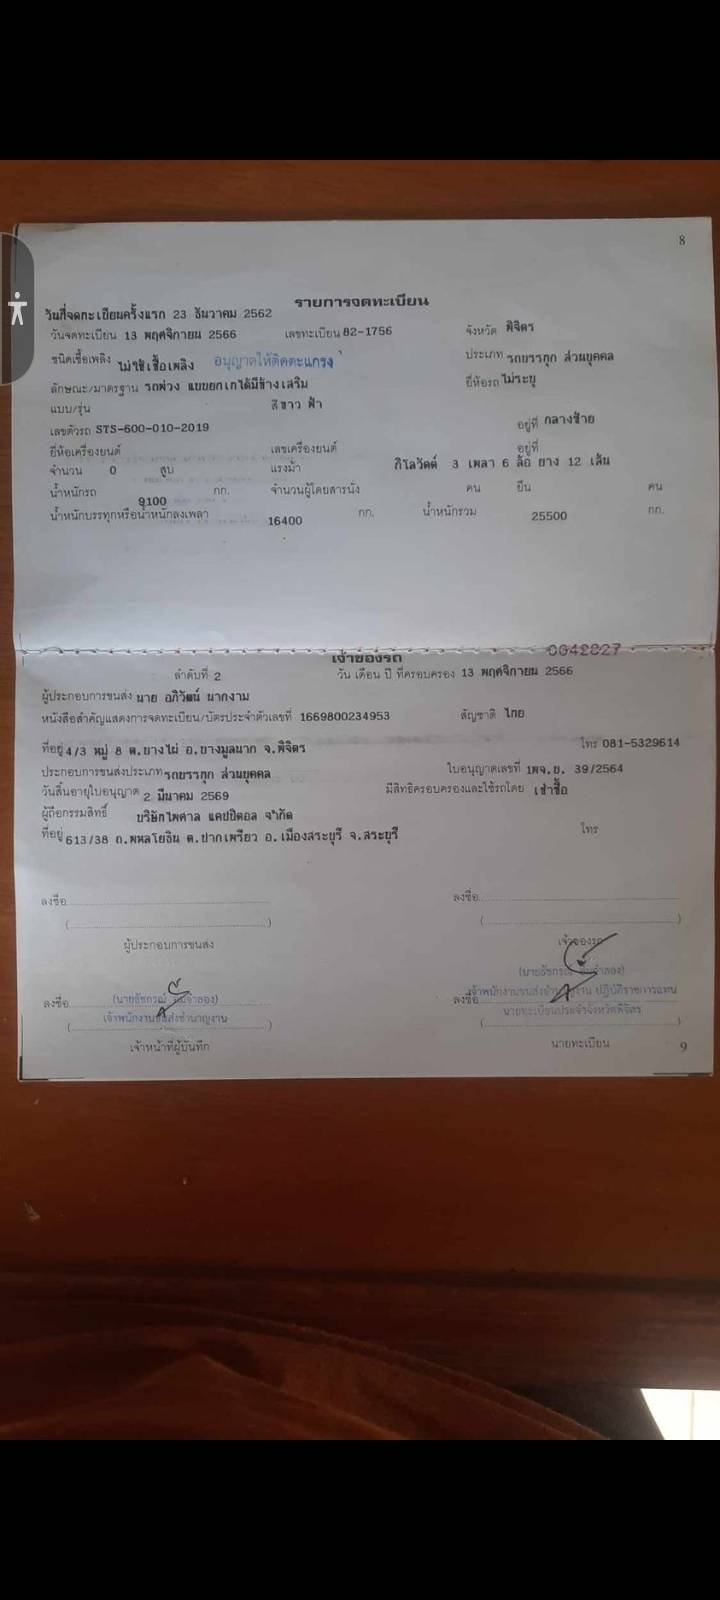 8
รายการจดทะเบียน
วันที่จดทะเบียนครั้งแรก 23 ธันวาคม 2562
วันจดทะเบียน 13 พฤศจิกายน 2566 เลขทะเบียน 82-1756 จังหวัด พิจิตร
ชนิดเชื้อเพลิง ไม่ใช้เชื้อเพลิง อนุญาตให้ติดตะแกรง ประเภท รถบรรทุก ส่วนบุคคล
ลักษณะ/มาตรฐาน รถพ่วง แบบยกเทได้มีข้างเสริม ยี่ห้อรถ ไม่ระบุ
แบบ/รุ่น สี ขาว ฟ้า
เลขตัวรถ STS-600-010-2019 อยู่ที่ กลางซ้าย
ยี่ห้อเครื่องยนต์ เลขเครื่องยนต์ อยู่ที่
จำนวน 0 สูบ แรงม้า กิโลวัตต์ 3 เพลา 6 ล้อ ยาง 12 เส้น
น้ำหนักรถ 9100 กก. จำนวนผู้โดยสารนั่ง คน ยืน คน
น้ำหนักบรรทุกหรือน้ำหนักลงเพลา 16400 กก. น้ำหนักรวม 25500 กก.
เจ้าของรถ 0042827
ลำดับที่ 2 วัน เดือน ปี ที่ครอบครอง 13 พฤศจิกายน 2566
ผู้ประกอบการขนส่ง นาย อภิวัฒน์ นากงาม
หนังสือสำคัญแสดงการจดทะเบียน/บัตรประจำตัวเลขที่ 1669800234953 สัญชาติ ไทย
ที่อยู่ 4/3 หมู่ 8 ต.บางไผ่ อ.บางมูลนาก จ.พิจิตร โทร 081-5329614
ประกอบการขนส่งประเภท รถบรรทุก ส่วนบุคคล ใบอนุญาตเลขที่ 1พจ.บ. 39/2564
วันสิ้นอายุใบอนุญาต 2 มีนาคม 2569 มีสิทธิครอบครองและใช้รถโดย เช่าซื้อ
ผู้ถือกรรมสิทธิ์ บริษัทไพศาล แคปปิตอล จำกัด
ที่อยู่ 613/38 ถ.พหลโยธิน ต.ปากเพรียว อ.เมืองสระบุรี จ.สระบุรี โทร
ลงชื่อ ลงชื่อ
( ) ( )
ผู้ประกอบการขนส่ง เจ้าของรถ
ลงชื่อ (นายธัชกรณ์ อิ่มจำลอง) ลงชื่อ (นายธัชกรณ์ อิ่มจำลอง)
เจ้าพนักงานขนส่งชำนาญงาน เจ้าพนักงานขนส่งชำนาญงาน ปฏิบัติราชการแทน
นายทะเบียนประจำจังหวัดพิจิตร
เจ้าหน้าที่ผู้บันทึก นายทะเบียน
9